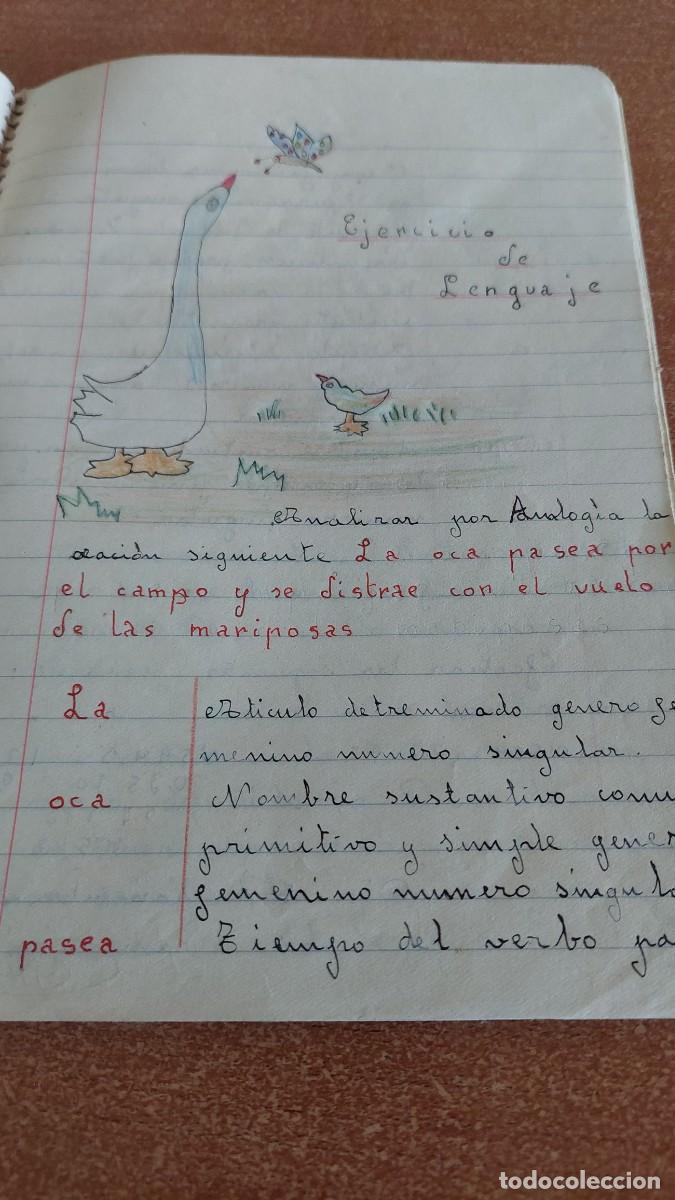 Ejercicio
de
Lenguaje
Analizar por Analogía la
oración siguiente La oca pasea por
el campo y se distrae con el vuelo
de las mariposas
La Articulo detreminado genero fe
menino numero singular.
oca Nombre sustantivo comu
primitivo y simple gener
femenino numero singul
pasea Tiempo del verbo pa
todocoleccion